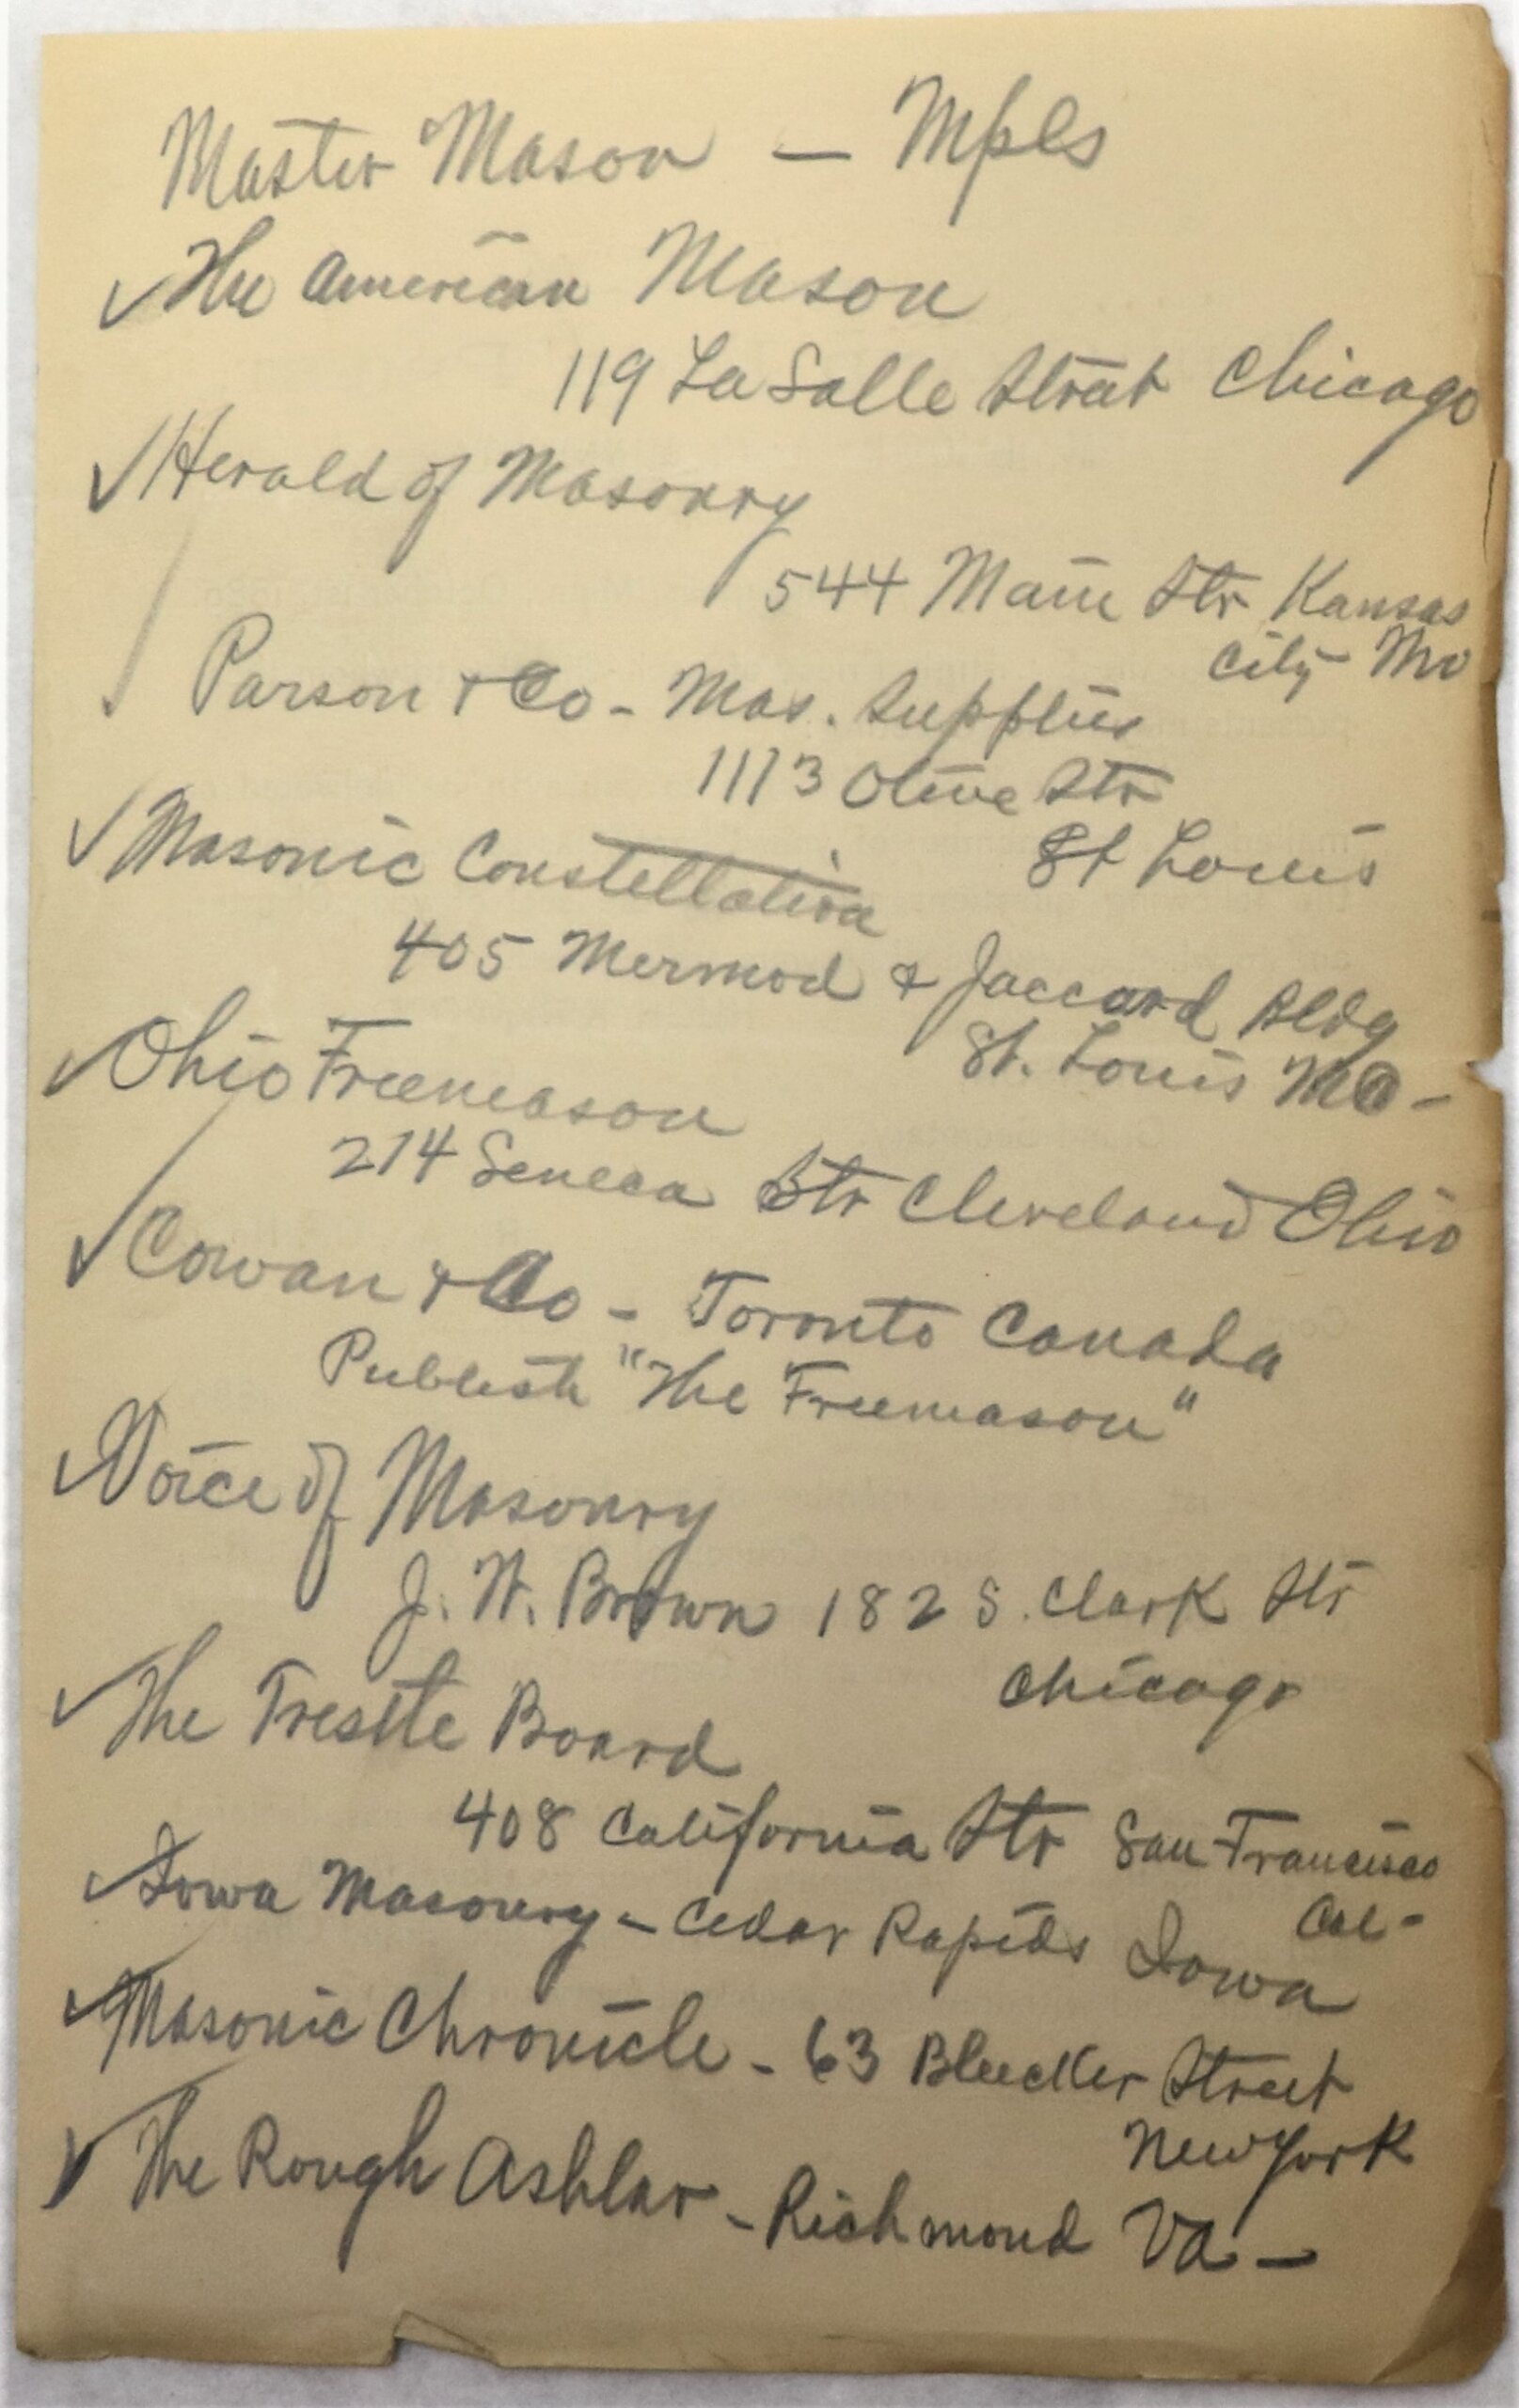 Master Mason — Mpls
✓ The American Mason
119 La Salle Street Chicago
✓ Herald of Masonry
544 Main Str Kansas
City Mo
✓ Parson & Co - Mas. Supplies
1113 Olive Str
St Louis
✓ Masonic Constellation
405 Mermod & Jaccard Bldg
St. Louis Mo -
✓ Ohio Freemason
214 Seneca Str Cleveland Ohio
✓ Cowan & Co - Toronto Canada
Publish "The Freemason"
✓ Voice of Masonry
J. W. Brown 182 S. Clark Str
Chicago
✓ The Trestle Board
408 California Str San Francisco
Cal -
✓ Iowa Masonry - Cedar Rapids Iowa
✓ Masonic Chronicle - 63 Bleecker Street
New York
✓ The Rough Ashlar - Richmond Va -